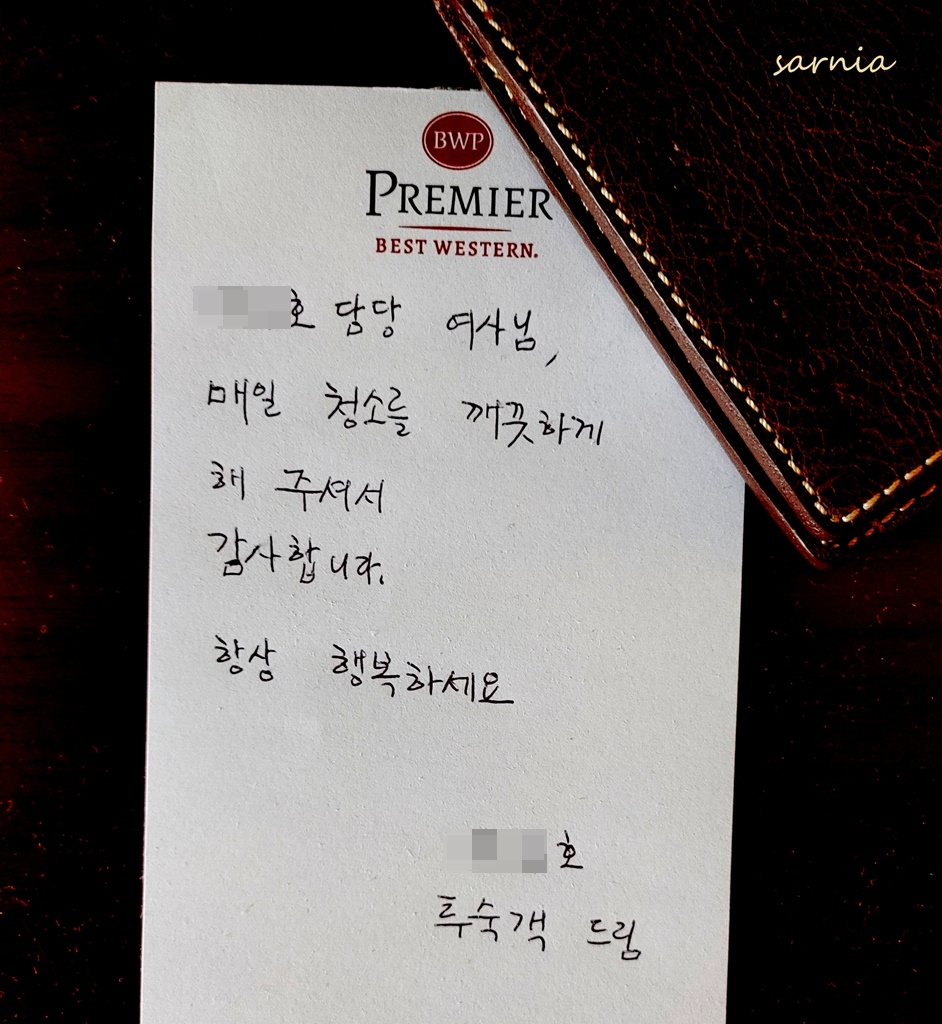 sarnia
BWP
PREMIER
BEST WESTERN.
호 담당 여사님,
매일 청소를 깨끗하게
해 주셔서
감사합니다.
항상 행복하세요
호
투숙객 드림